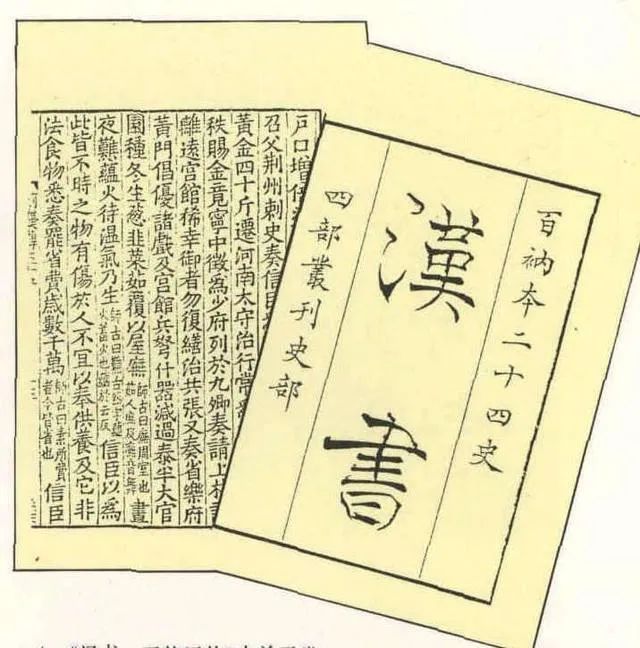 百衲本二十四史
漢書
四部叢刊史部
戶口增倍
召父荊州刺史奏信臣
黃金四十斤還河南太守治行常爲
秩賜金竟寧中徵爲少府列於九卿奏請上林
離遠宮館稀幸御者勿復繕治共張又奏省樂府
黃門倡優諸戲及宮館兵弩什器減過泰半大官
園種冬生葱韭菜茹覆以屋廡師古曰廡周室也茹人庶反廡音舞晝
夜難蘊火待溫氣乃生信臣以爲
此皆不時之物有傷於人不宜以奉供養及它非
法食物悉奏罷省費歲數千萬師古曰素所費者今皆省也信臣